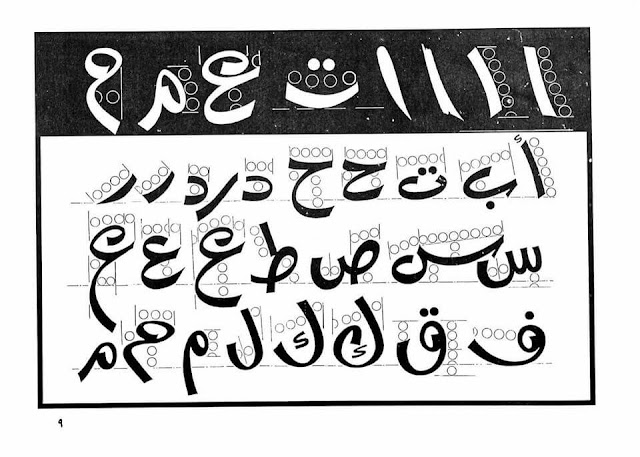 ا ا ا ا ا ت ع م م
أ ب ت ح ح د ر د ر ر
س س ص ط ع ع ع
ف ق ك ك ل م م م
٩